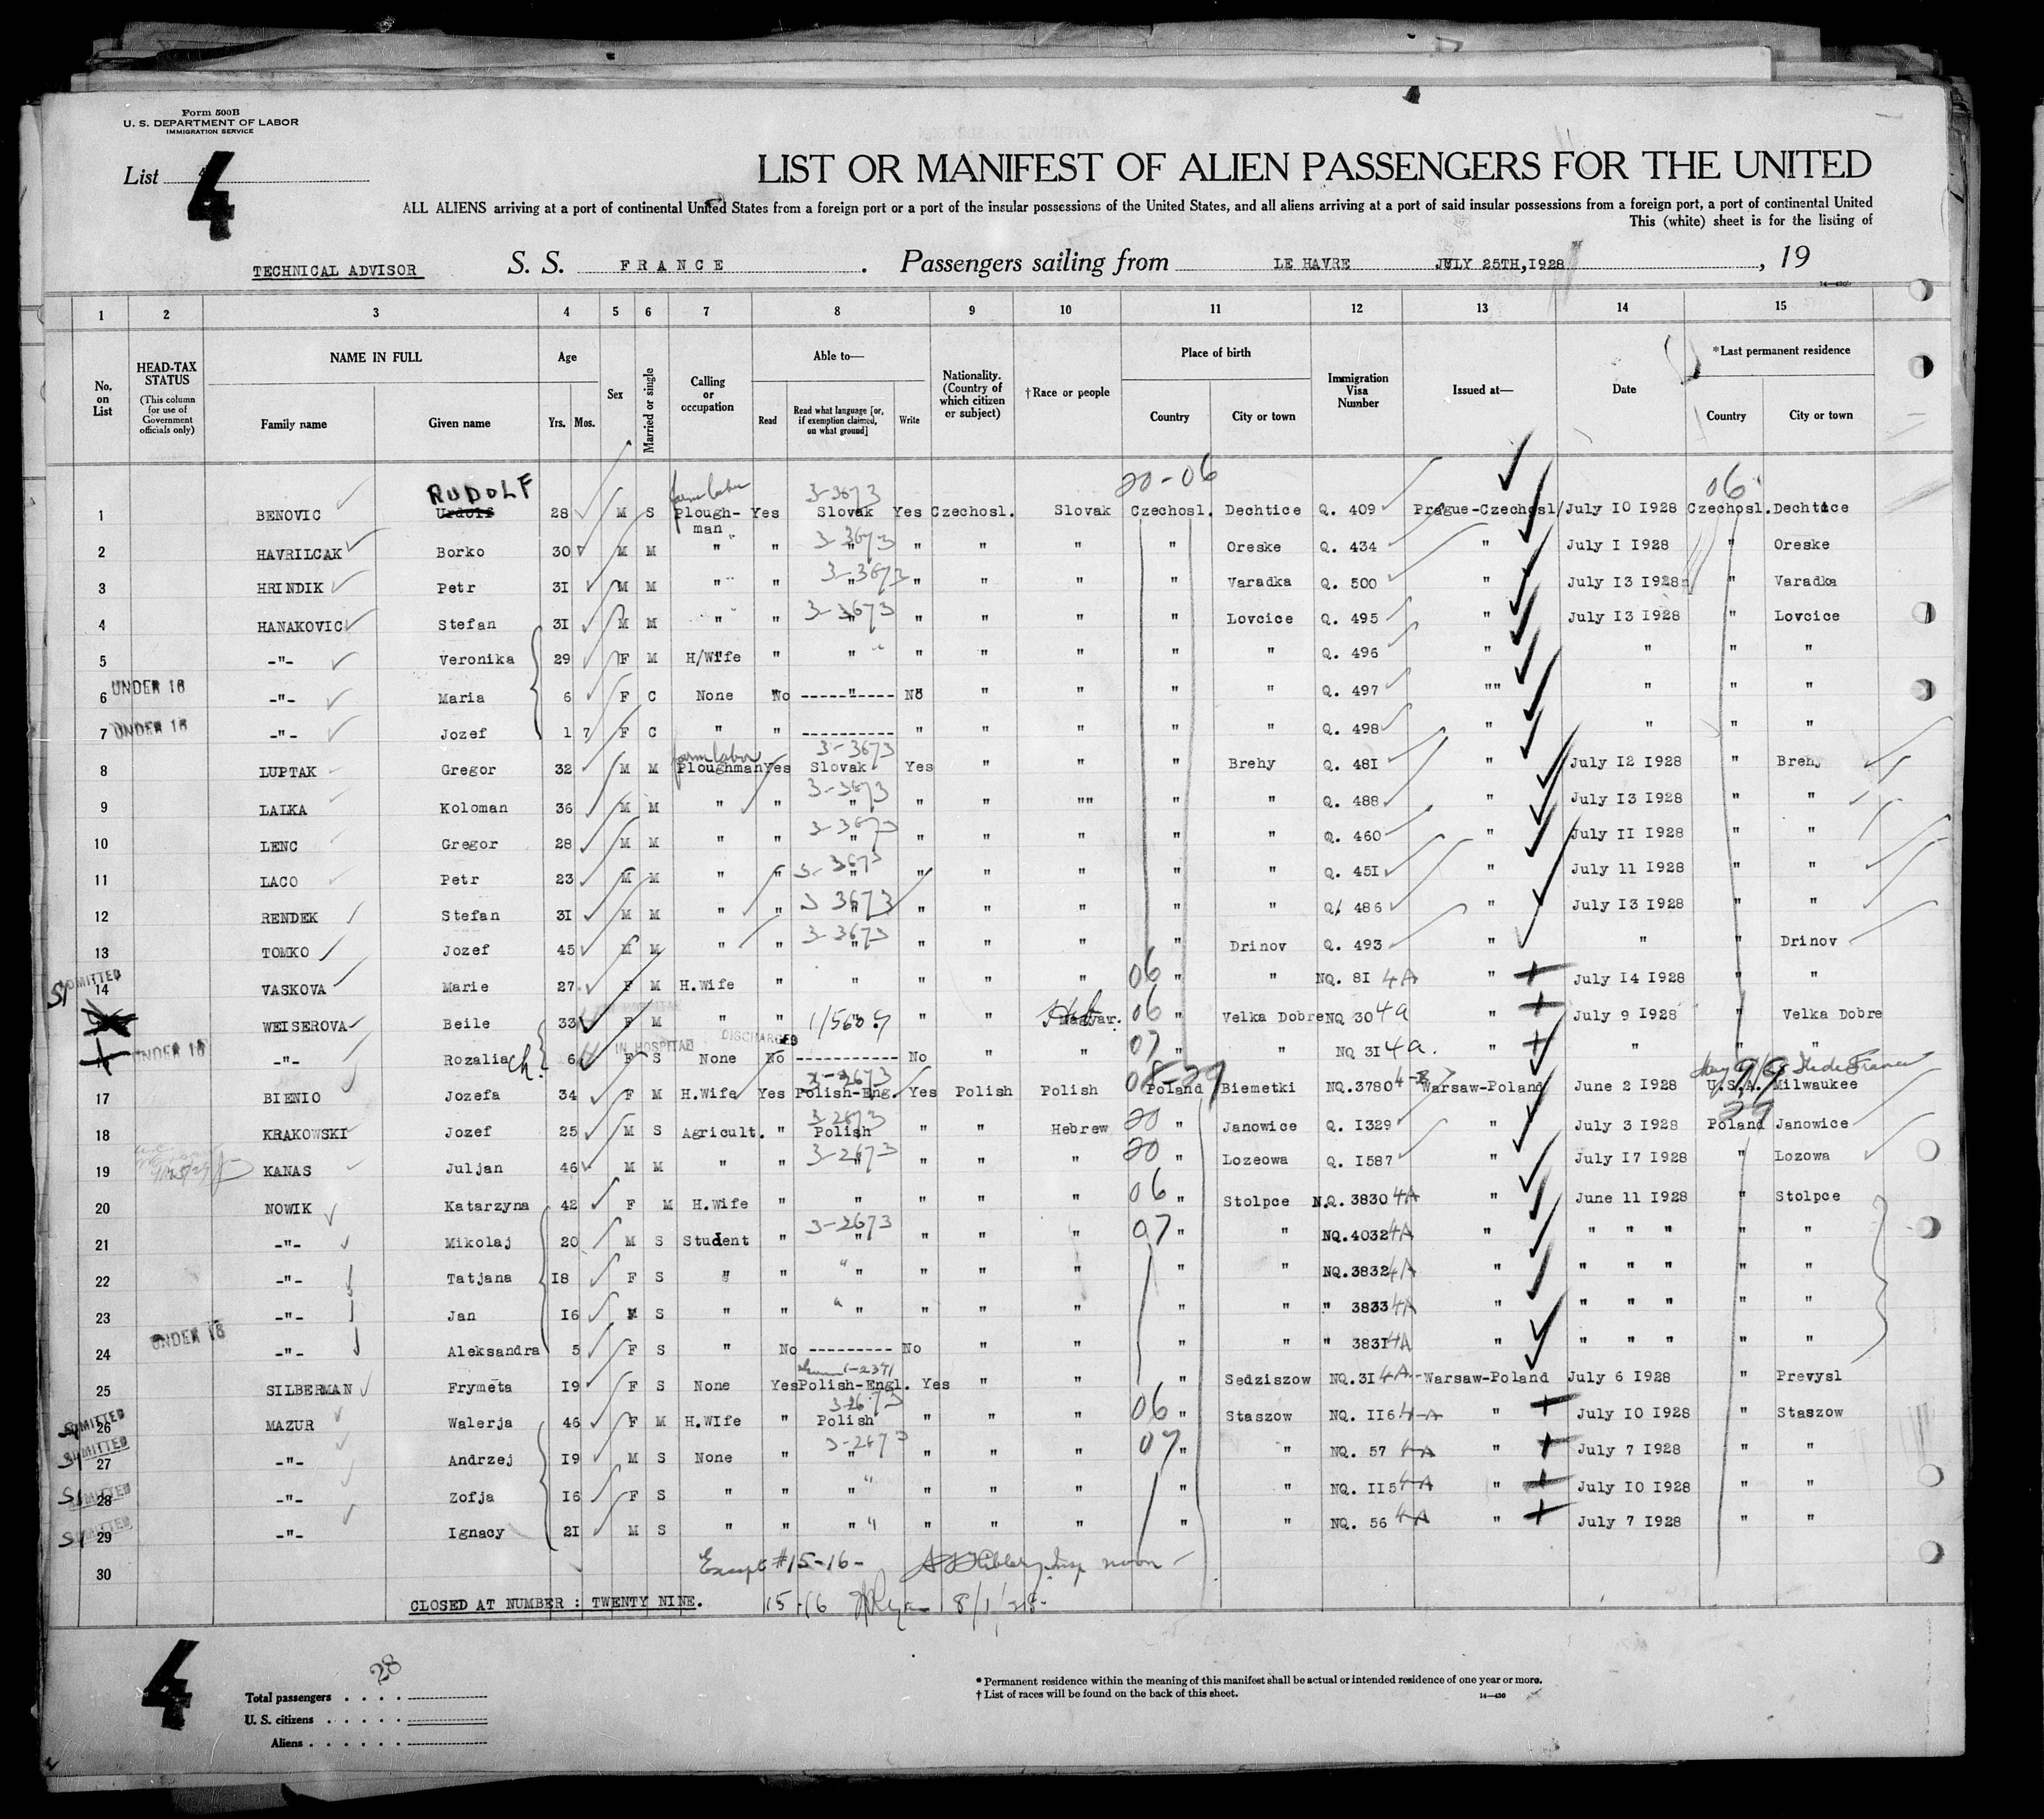 Form 500B
U. S. DEPARTMENT OF LABOR
IMMIGRATION SERVICE
List 4
4
LIST OR MANIFEST OF ALIEN PASSENGERS FOR THE UNITED
ALL ALIENS arriving at a port of continental United States from a foreign port or a port of the insular possessions of the United States, and all aliens arriving at a port of said insular possessions from a foreign port, a port of continental United
This (white) sheet is for the listing of
TECHNICAL ADVISOR S. S. FRANCE . Passengers sailing from LE HAVRE JULY 25TH, I928 , 19
14—430
1 2 3 4 5 6 7 8 9 10 11 12 13 14 15
No. on List
HEAD-TAX STATUS (This column for use of Government officials only)
NAME IN FULL Family name Given name
Age Yrs. Mos.
Sex
Married or single
Calling or occupation
Able to— Read Read what language [or, if exemption claimed, on what ground] Write
Nationality. (Country of which citizen or subject)
†Race or people
Place of birth Country City or town
Immigration Visa Number
Issued at—
Date
*Last permanent residence Country City or town
RUDOLF farm labor 3-3673 20-06 06
1 BENOVIC Urdolf 28 M S Plough-man Yes Slovak Yes Czechosl. Slovak Czechosl. Dechtice Q. 409 Prague-Czechosl/ July IO I928 Czechosl. Dechtice
2 HAVRILCAK Borko 30 M M " " 3-3673 " " " " " Oreske Q. 434 " July I I928 " Oreske
3 HRINDIK Petr 3I M M " " 3-3673 " " " " " Varadka Q. 500 " July I3 I928 " Varadka
4 HANAKOVIC Stefan 3I M M " " 3-3673 " " " " " Lovcice Q. 495 " July I3 I928 " Lovcice
5 -"- Veronika 29 F M H/Wife " " " " " " " Q. 496 " " " "
UNDER 16 6 -"- Maria 6 F C None No -----"---- No " " " " Q. 497 "" " " "
UNDER 16 7 -"- Jozef 1 7 F C " " ---------- " " " " " Q. 498 " " " "
farm labor 3-3673
8 LUPTAK Gregor 32 M M Ploughman Yes Slovak Yes " " " Brehy Q. 48I " July I2 I928 " Brehy
9 LALKA Koloman 36 M M " " 3-3673 " " " "" " " Q. 488 " July I3 I928 " "
10 LENC Gregor 28 M M " " 3-3673 " " " " " " Q. 460 " July II I928 " "
11 LACO Petr 23 M M " " 3-3673 " " " " " " Q. 45I " July 11 I928 " "
12 RENDEK Stefan 3I M M " " 3 3673 " " " " " " Q/ 486 " July I3 I928 " "
13 TOMKO Jozef 45 M M " " 3-3673 " " " " " Drinov Q. 493 " " " Drinov
SI ADMITTED 14 VASKOVA Marie 27 F M H.Wife " " " " " 06 " " NQ. 8I 4A " July I4 I928 " "
WEISEROVA Beile 33 F M " " 1/560 " " Magyar. 06 " Velka Dobre NQ 30 4a " July 9 I928 " Velka Dobre
IN HOSPITAL DISCHARGED
UNDER 16 -"- Rozalia ch. 6 F S None No ----------- No " " 07 " " NQ 3I 4a. " " " "
17 BIENIO Jozefa 34 F M H.Wife Yes 3-2673 Polish-Eng. Yes Polish Polish Poland Biemetki NQ.3780 Warsaw-Poland June 2 I928 U.S.A. Milwaukee
29
18 KRAKOWSKI Jozef 25 M S Agricult. " 3-2673 Polish " " Hebrew 20 " Janowice Q. I329 " July 3 I928 Poland Janowice
19 KANAS Juljan 46 M M " " 3-2673 " " " " 20 " Lozeowa Q. I587 " July I7 I928 " Lozowa
20 NOWIK Katarzyna 42 F M H.Wife " " " " " 06 " Stolpce N.Q. 3830 4A " June 11 I928 " Stolpce
21 -"- Mikolaj 20 M S Student " 3-2673 " " " " 07 " " NQ.4032 4A " " " " " "
22 -"- Tatjana I8 F S " " " " " " " " NQ.3832 4A " " " " " "
23 -"- Jan I6 M S " " " " " " " " " 3833 4A " " " " " "
UNDER 16 24 -"- Aleksandra 5 F S " No ---------- No " " " " " 383I 4A " " " " " "
25 SILBERMAN Frymeta I9 F S None Yes Polish-Engl. Yes " " " Sedziszow NQ.3I 4A Warsaw-Poland July 6 I928 " Prevysl
SI ADMITTED 26 MAZUR Walerja 46 F M H.WIfe " 3-2673 Polish " " " 06 " Staszow NQ. II6 4-A " July IO I928 " Staszow
SI ADMITTED 27 -"- Andrzej I9 M S None " 3-2673 " " " " 07 " " NQ. 57 4-A " July 7 I928 " "
SI ADMITTED 28 -"- Zofja I6 F S " " " " " " " " NQ. II5 4-A " July IO I928 " "
SI ADMITTED 29 -"- Ignacy 2I M S " " " " " " " " NQ. 56 4-A " July 7 I928 " "
30 Except #15-16-
CLOSED AT NUMBER : TWENTY NINE. 15-16 8/1/28-
4
28
Total passengers . . . .
U. S. citizens . . . . .
Aliens . . . . . .
* Permanent residence within the meaning of this manifest shall be actual or intended residence of one year or more.
† List of races will be found on the back of this sheet.
14—430